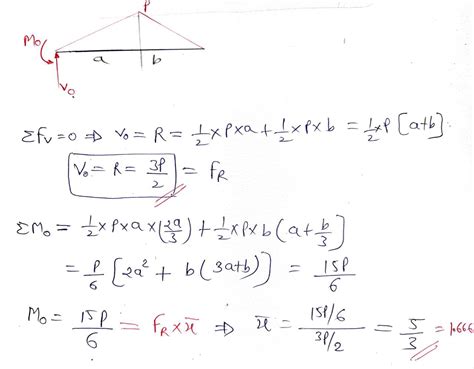 P
M₀
a b
V₀
ΣFv = 0 ⇒ V₀ = R = 1/2 × P × a + 1/2 × P × b = 1/2 × P [a+b]
V₀ = R = 3P/2 = F_R
ΣM₀ = 1/2 × P × a × (2a/3) + 1/2 × P × b (a + b/3)
= P/6 [2a² + b (3a+b)] = 15P/6
M₀ = 15P/6 = F_R × x̄ ⇒ x̄ = 15P/6 / 3P/2 = 5/3 = 1.666